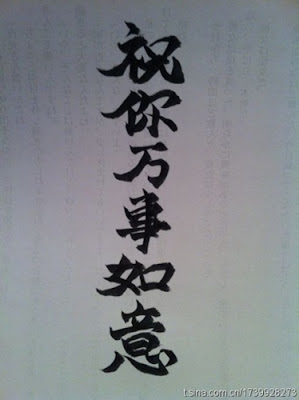 祝你万事如意
t.sina.com.cn/1739928273